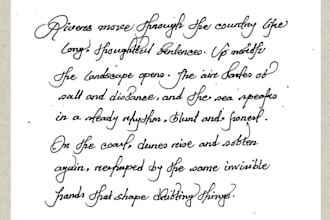 Rivers move through the country like
long, thoughtful sentences. Up north
the landscape opens. The air tastes of
salt and distance, and the sea speaks
in a steady rhythm, blunt and honest.
On the coast, dunes rise and soften
again, reshaped by the same invisible
hands that shape drifting things.